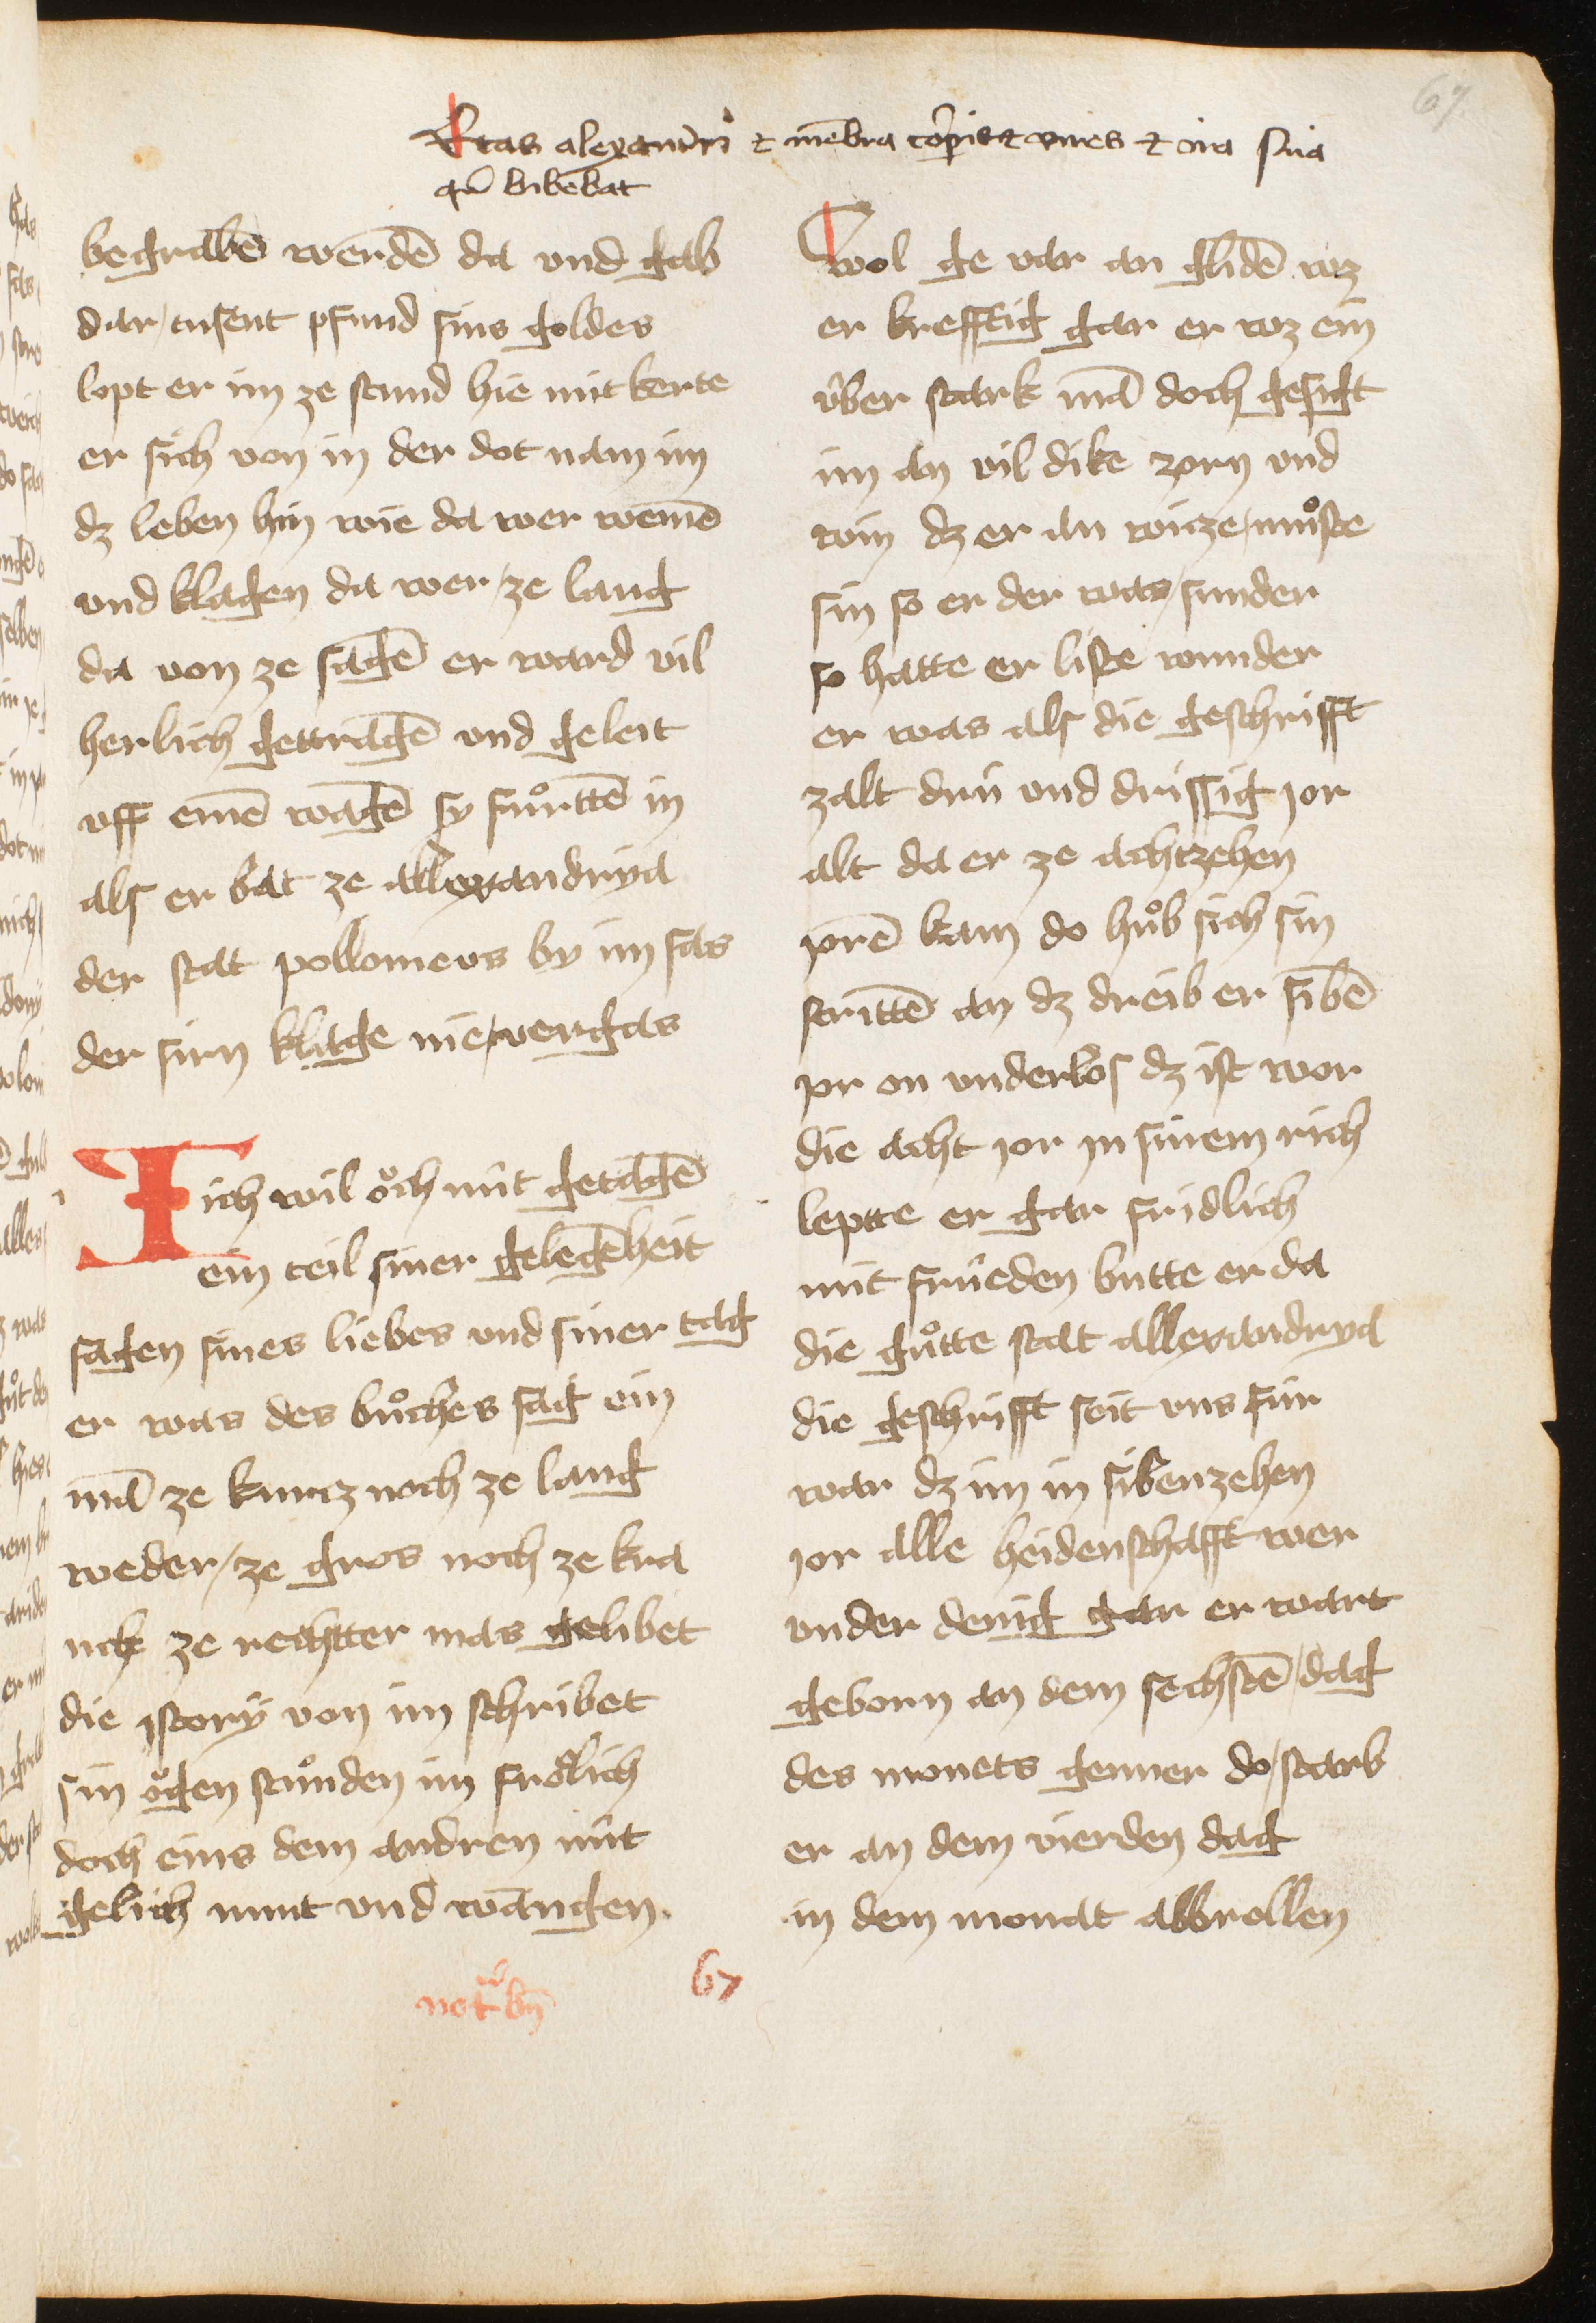 67
Etas alexandri et mēbra corp̄is et vires et ira sua
qn̄ bibebat
begrabē werdē da vnd gab
dar tusent pfund sins goldes
lopt er im ze stund hie mit kerte
er sich von in der dot nam im
dz leben hin wie da wer weinē
vnd klagen da wer ze lang
da von ze sagē er ward vil
herlich gettragē vnd geleit
vff einē wagē sy fuͦrttē in
als er bat ze allexandrya
der stat pollomeus by im sas
der sirn klage nie vergas
Ich wil oͧch nüt getagē
ein teil siner gelegēheit
sagen sines liebes vnd siner tag
er was des buͦches sag ein
mā ze kurcz noch ze lang
weder ze gros noch ze kra
nck ze rechtter mas gelibet
die jstory von im schribet
sin oͧgen stuͦnden im froͤlich
doch eins dem andren nüt
gelich munt vnd wangen
Wol ge var an glidē wz
er krefftig gar er wz ein
v̂ber stark mā doch gesigt
im an vil dike zorn vnd
win dz er an wicze muͦste
sin so er der was sunder
so hatte er liste wunder
er was als die geschrifft
zalt drü vnd drissig jor
alt da er ze achtzehen
jorē kam do huͦb sich sin
strittē an dz dreib er sibē
jor on vnderlos dz ist wor
die acht jor jn sinem rich
leptte er gar fridlich
mit frûeden butte er da
die guͦtte stat allexandrya
die geschrifft seit vns für
war dz im in sibenzehen
jor alle heidenschafft wer
vnder denig gar er wart
geborn an dem sechstē dag
des monets genner do starb
er an dem vierden dag
in dem monat abbrellen
67